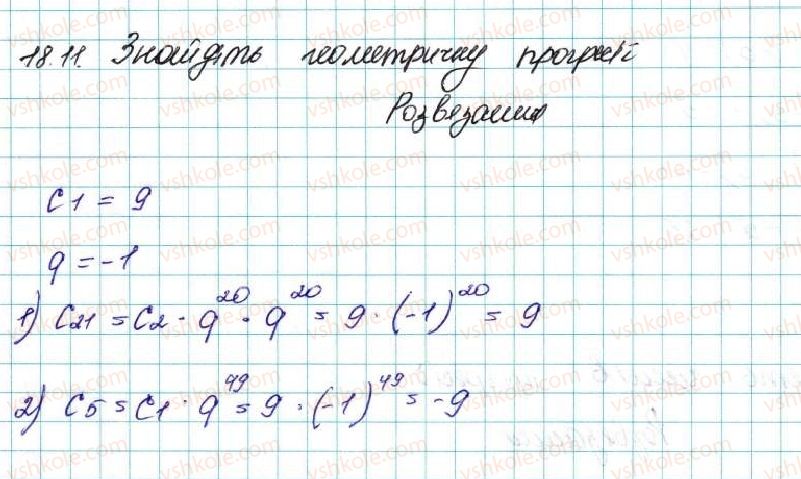 18.11. Знайдіть геометричну прогресії
Розвязання
c1 = 9
q = -1
1) C21 = C2 · q^20 · q^20 = 9 · (-1)^20 = 9
2) C5 = C1 · q^49 = 9 · (-1)^49 = -9